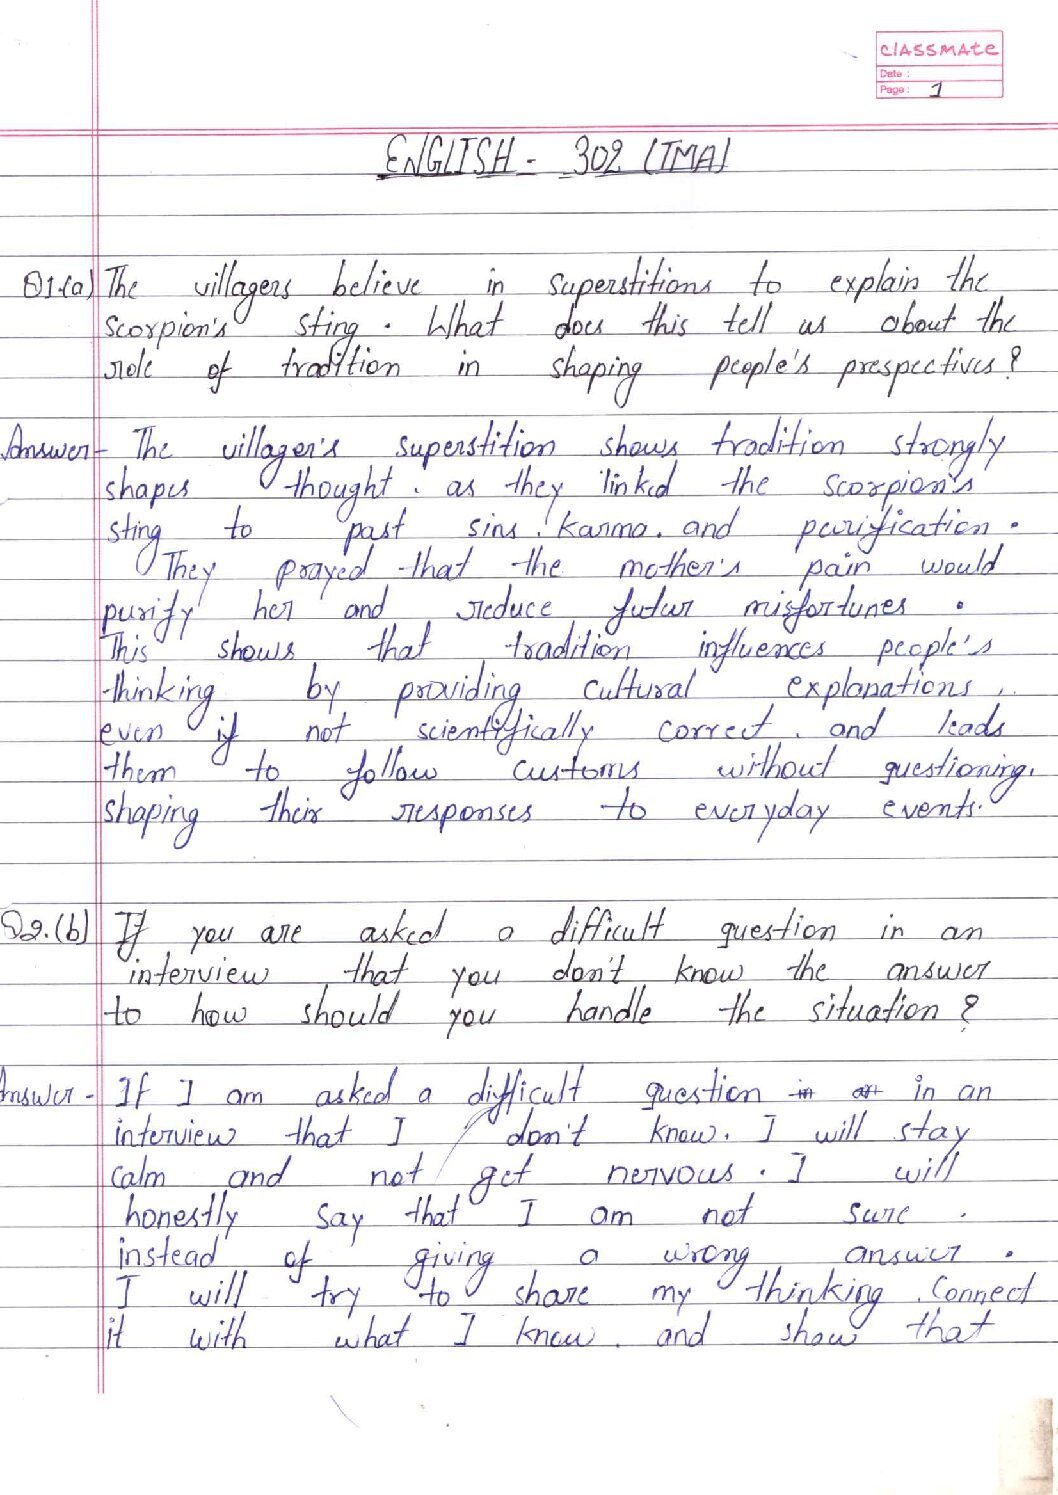 classmate
Date :
Page : 1
ENGLISH - 302 (TMA)
Q1.(a) The villagers believe in superstitions to explain the
scorpion's sting. What does this tell us about the
role of tradition in shaping people's prespectives?
Answer- The villager's superstition shows tradition strongly
shapes thought, as they linked the scorpion's
sting to past sins, karma, and purification.
They prayed that the mother's pain would
purify her and reduce futur misfortunes.
This shows that tradition influences people's
thinking by providing cultural explanations,
even if not scientifically correct, and leads
them to follow customs without questioning,
shaping their responses to everyday events.
Q2.(b) If you are asked a difficult question in an
interview, that you don't know the answer
to how should you handle the situation?
Answer - If I am asked a difficult question in an in an
interview that I don't know, I will stay
calm and not get nervous. I will
honestly say that I am not sure,
instead of giving a wrong answer.
I will try to share my thinking, Connect
it with what I know, and show that